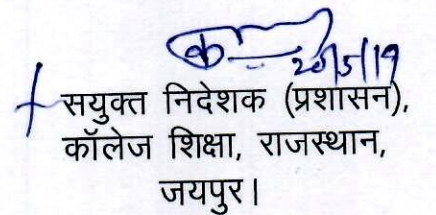 20/5/19
सयुक्त निदेशक (प्रशासन),
कॉलेज शिक्षा, राजस्थान,
जयपुर।